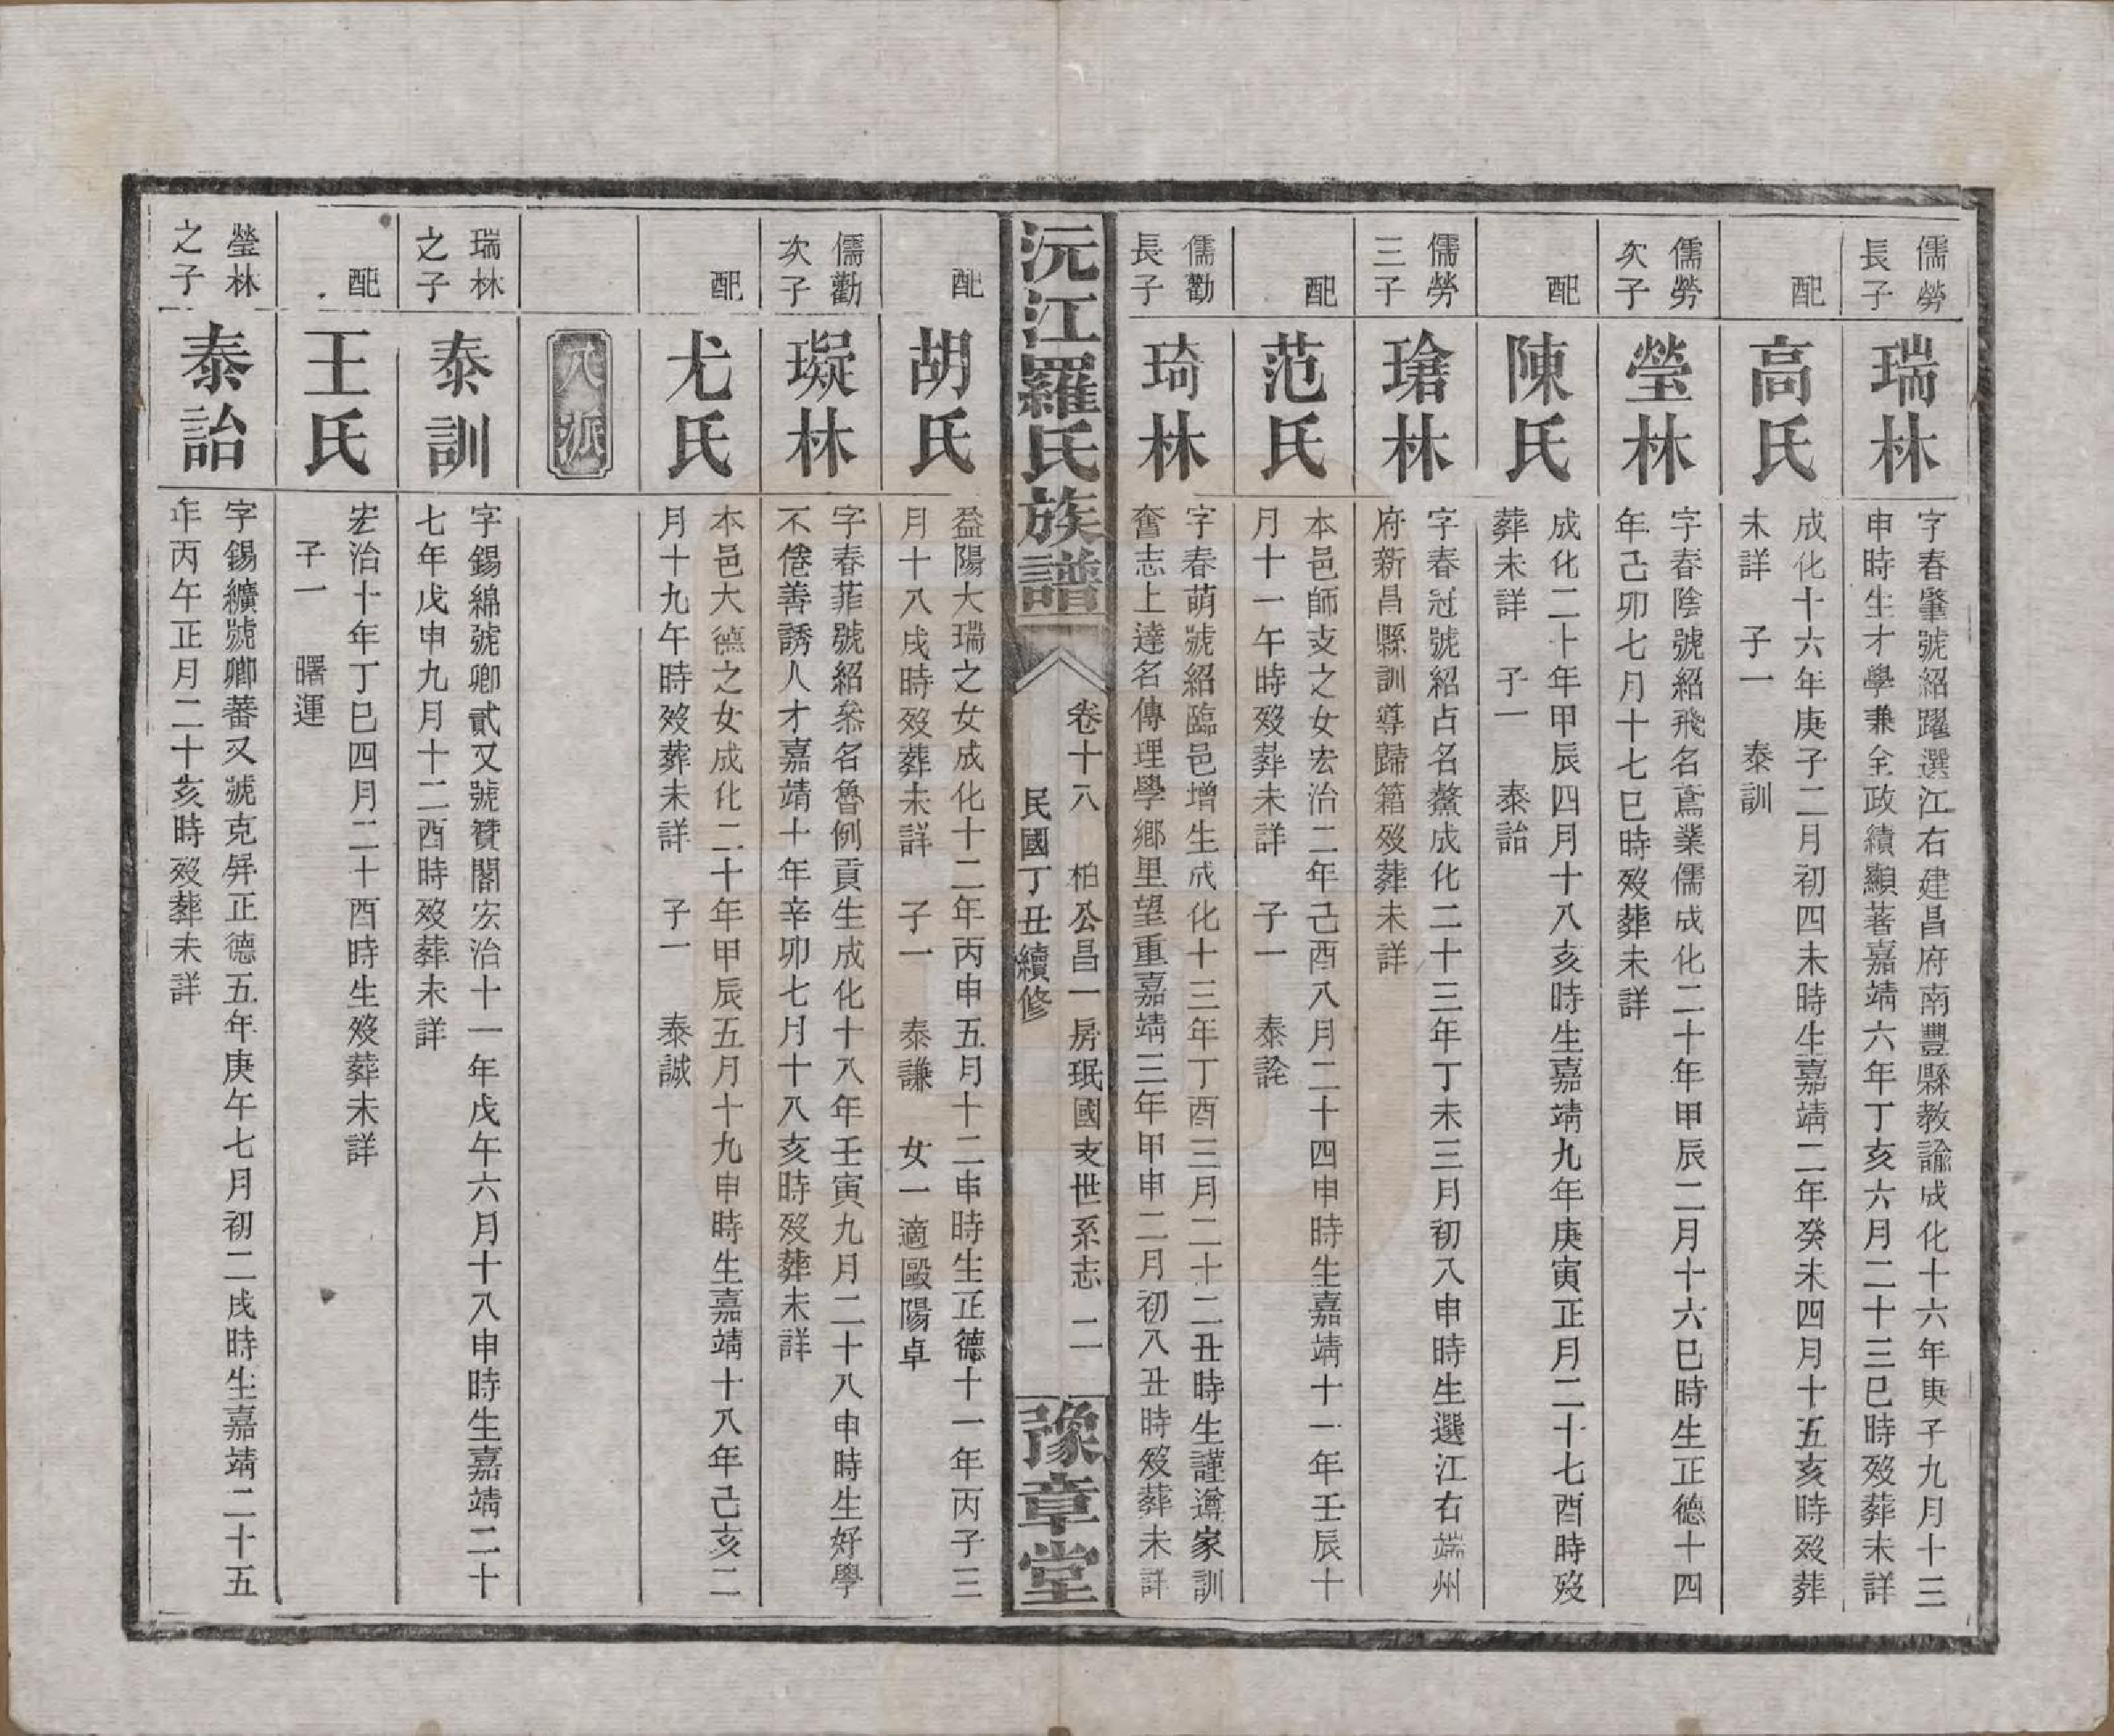 儒勞
長子
瑞林
字春肇號紹躍選江右建昌府南豐縣教諭成化十六年庚子九月十三
申時生才學兼全政績顯著嘉靖六年丁亥六月二十三巳時歿葬未詳
配
高氏
成化十六年庚子二月初四未時生嘉靖二年癸未四月十五亥時歿葬
未詳 子一 泰訓
儒勞
次子
瑩林
字春陰號紹飛名鳶業儒成化二十年甲辰二月十六巳時生正德十四
年己卯七月十七巳時歿葬未詳
配
陳氏
成化二十年甲辰四月十八亥時生嘉靖九年庚寅正月二十七酉時歿
葬未詳 子一 泰詒
儒勞
三子
瑲林
字春冠號紹占名鰲成化二十三年丁未三月初八申時生選江右端州
府新昌縣訓導歸籍歿葬未詳
配
范氏
本邑師支之女宏治二年己酉八月二十四申時生嘉靖十一年壬辰十
月十一午時歿葬未詳 子一 泰詮
儒勸
長子
琦林
字春萌號紹臨邑增生成化十三年丁酉三月二十二丑時生謹遵家訓
奮志上達名傳理學鄉里望重嘉靖三年甲申二月初八丑時歿葬未詳
沅江羅氏族譜
卷十八 柏公昌一房珉國支世系志 二
民國丁丑續修
豫章堂
配
胡氏
益陽大瑞之女成化十二年丙申五月十二申時生正德十一年丙子三
月十八戌時歿葬未詳 子一 泰謙 女一適歐陽卓
儒勸
次子
璇林
字春菲號紹叅名魯例貢生成化十八年壬寅九月二十八申時生好學
不倦善誘人才嘉靖十年辛卯七月十八亥時歿葬未詳
配
尤氏
本邑大德之女成化二十年甲辰五月十九申時生嘉靖十八年己亥二
月十九午時歿葬未詳 子一 泰誠
八派
瑞林
之子
泰訓
字錫綿號卿貳又號贊閣宏治十一年戊午六月十八申時生嘉靖二十
七年戊申九月十二酉時歿葬未詳
配
王氏
宏治十年丁巳四月二十酉時生歿葬未詳
子一 曙運
瑩林
之子
泰詒
字錫纊號卿蕃又號克昇正德五年庚午七月初二戌時生嘉靖二十五
年丙午正月二十亥時歿葬未詳